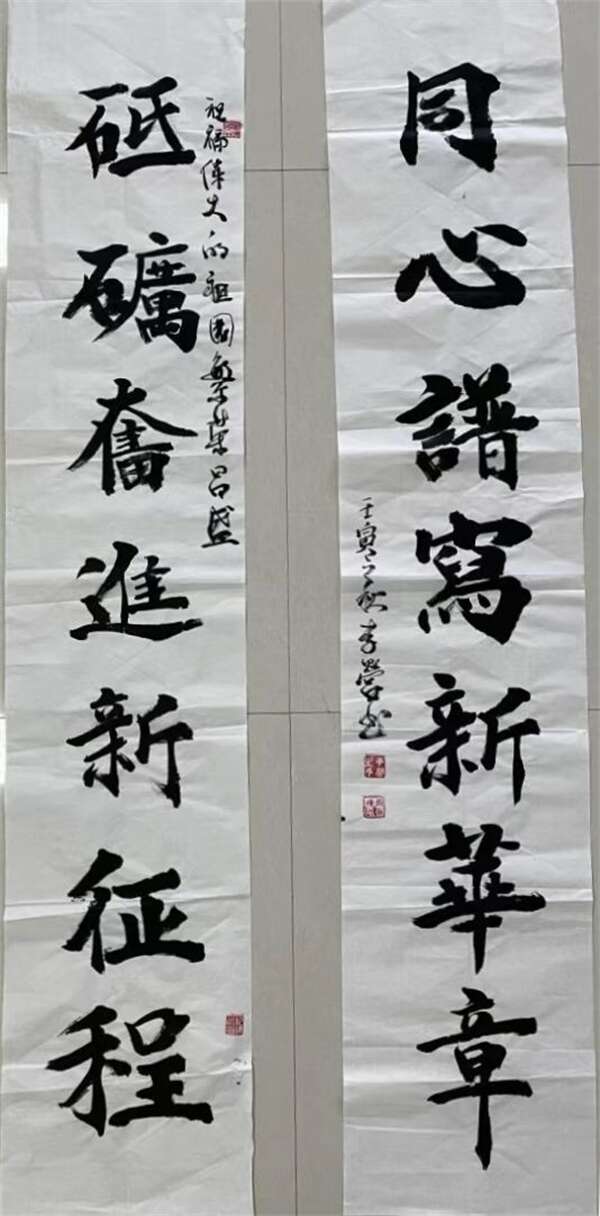 砥礪奮進新征程
祝福偉大的祖國繁榮昌盛
同心譜寫新華章
壬寅之秋李營書